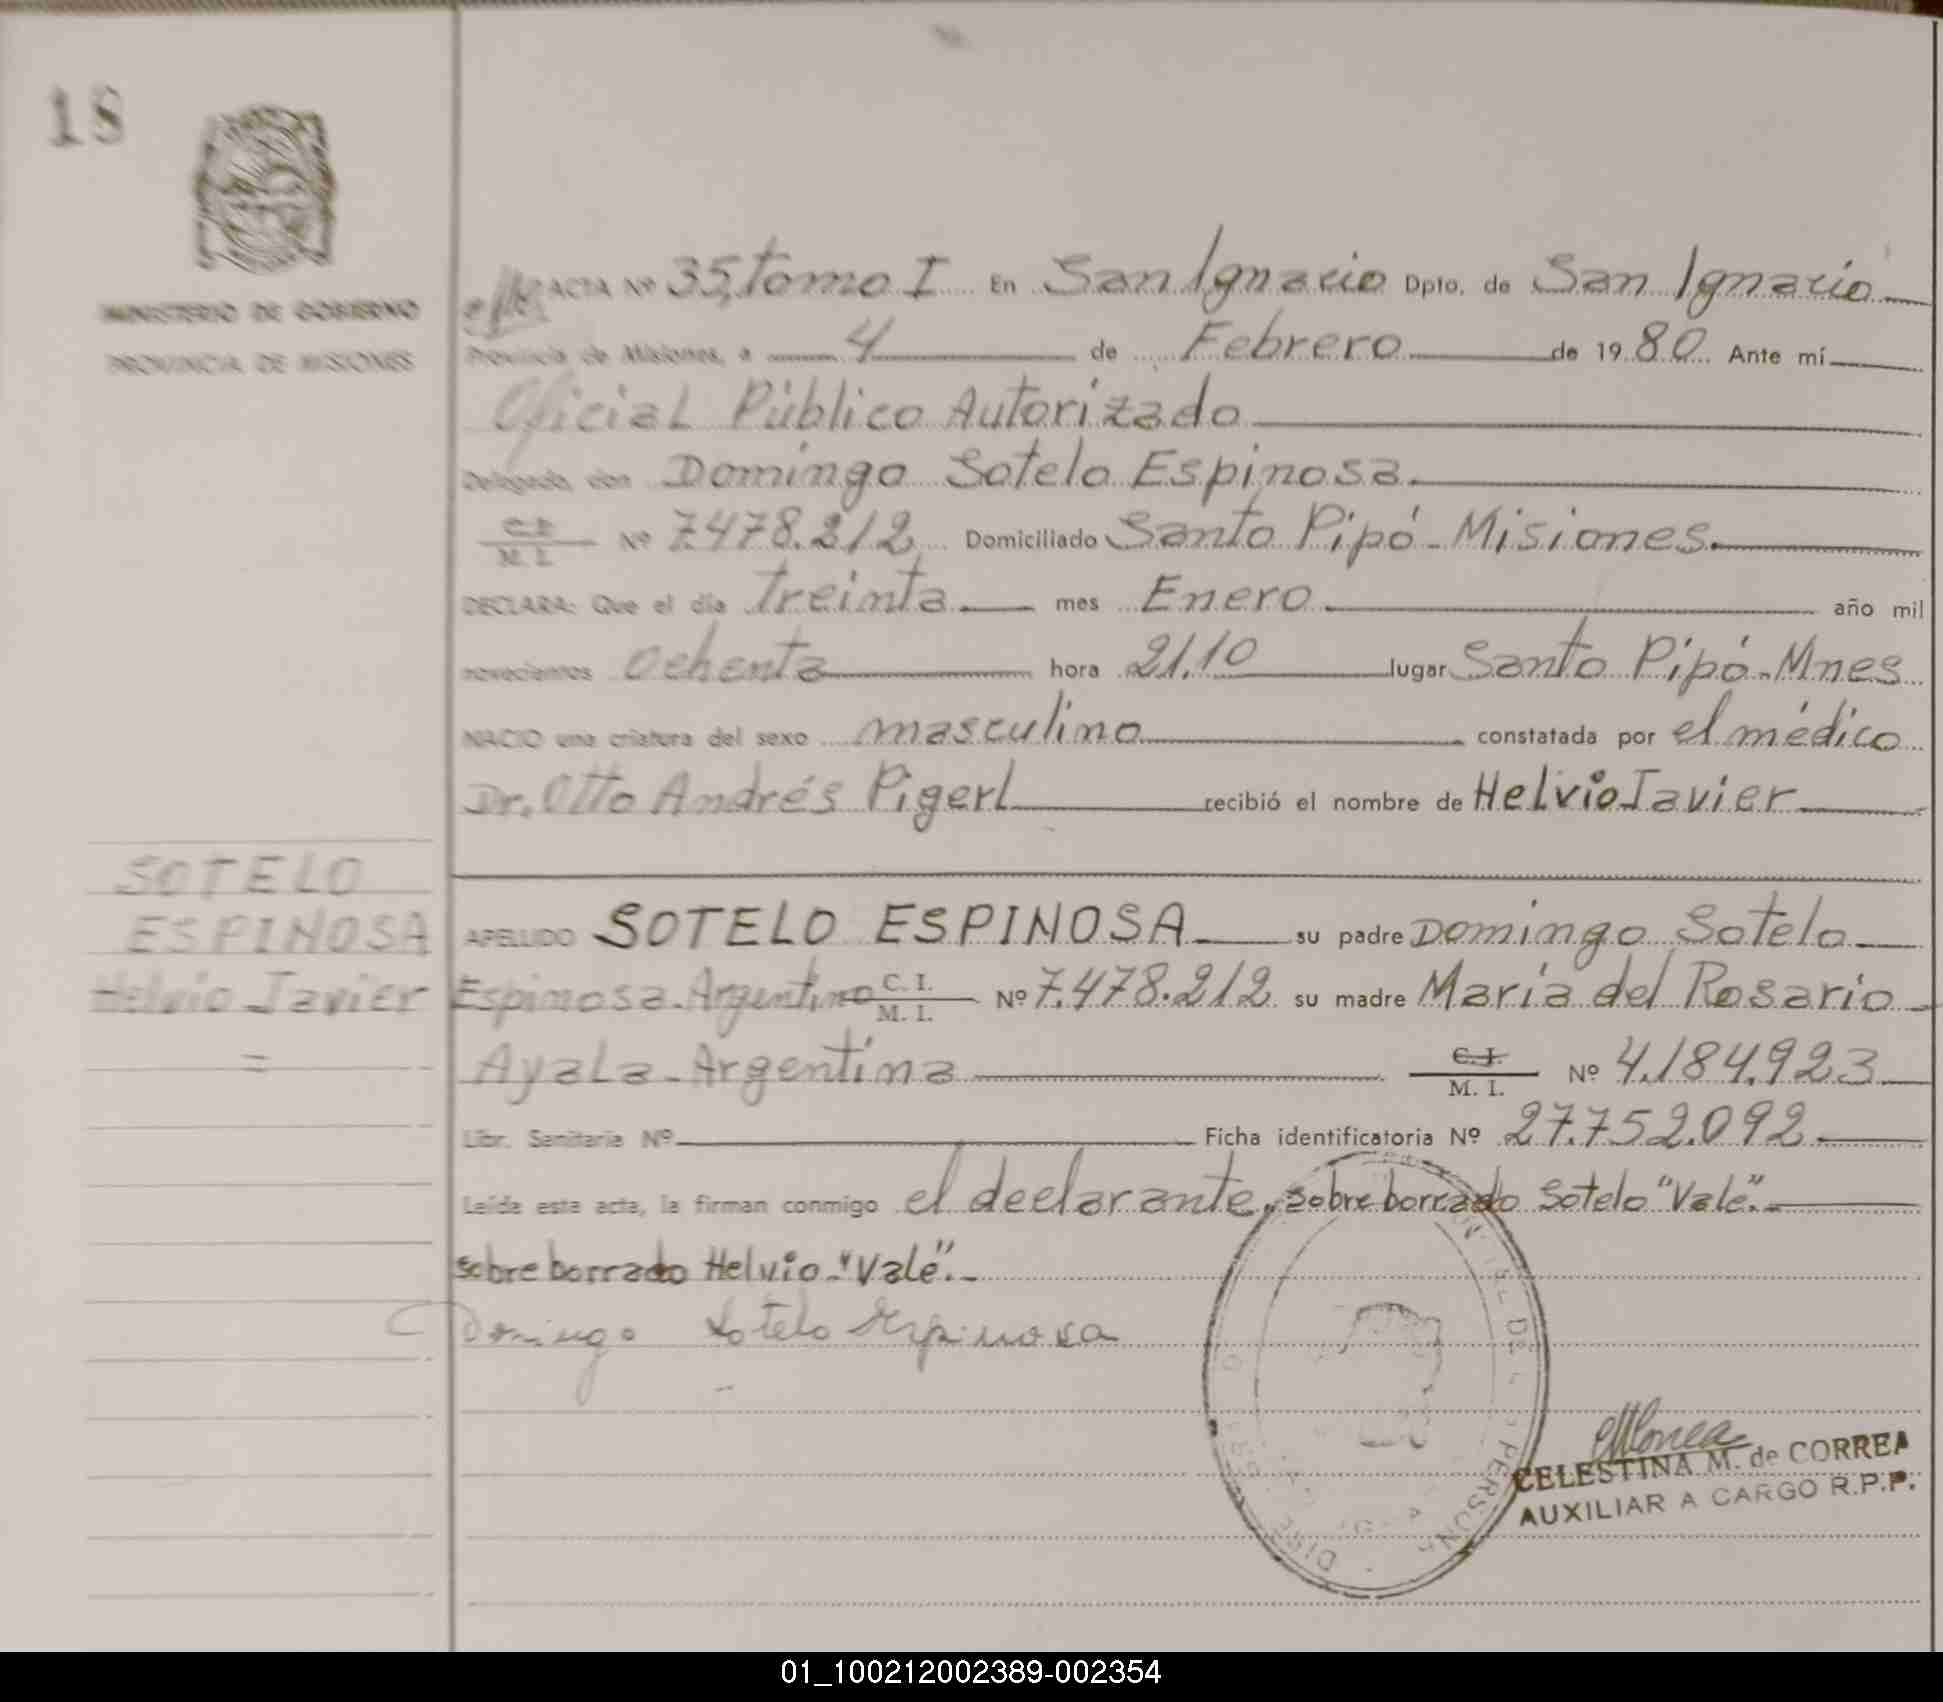 18
MINISTERIO DE GOBIERNO
PROVINCIA DE MISIONES
ACTA Nº 35, tomo I En San Ignacio Dpto. de San Ignacio
Provincia de Misiones, a 4 de Febrero de 1980 Ante mí
Oficial Público Autorizado
Delegado, con Domingo Sotelo Espinosa.
C.I. M. I. Nº 7.478.212 Domiciliado Santo Pipó - Misiones.
DECLARA: Que el día treinta mes Enero año mil
novecientos Ochenta hora 21.10 lugar Santo Pipó-Mnes
NACIO una criatura del sexo masculino constatada por el médico
Dr. Otto Andrés Pigerl recibió el nombre de Helvio Javier
SOTELO
ESPINOSA
Helvio Javier
=
APELLIDO SOTELO ESPINOSA su padre Domingo Sotelo
Espinosa-Argentino C. I. M. I. Nº 7.478.212 su madre María del Rosario
Ayala-Argentina C. I. M. I. Nº 4.184.923
Libr. Sanitaria Nº Ficha identificatoria Nº 27.752.092
Leída esta acta, la firman conmigo el declarante, sobre borrado Sotelo "Vale".-
sobre borrado Helvio-"Vale".-
Domingo Sotelo Espinosa
CELESTINA M. de CORREA
AUXILIAR A CARGO R.P.P.
01_100212002389-002354